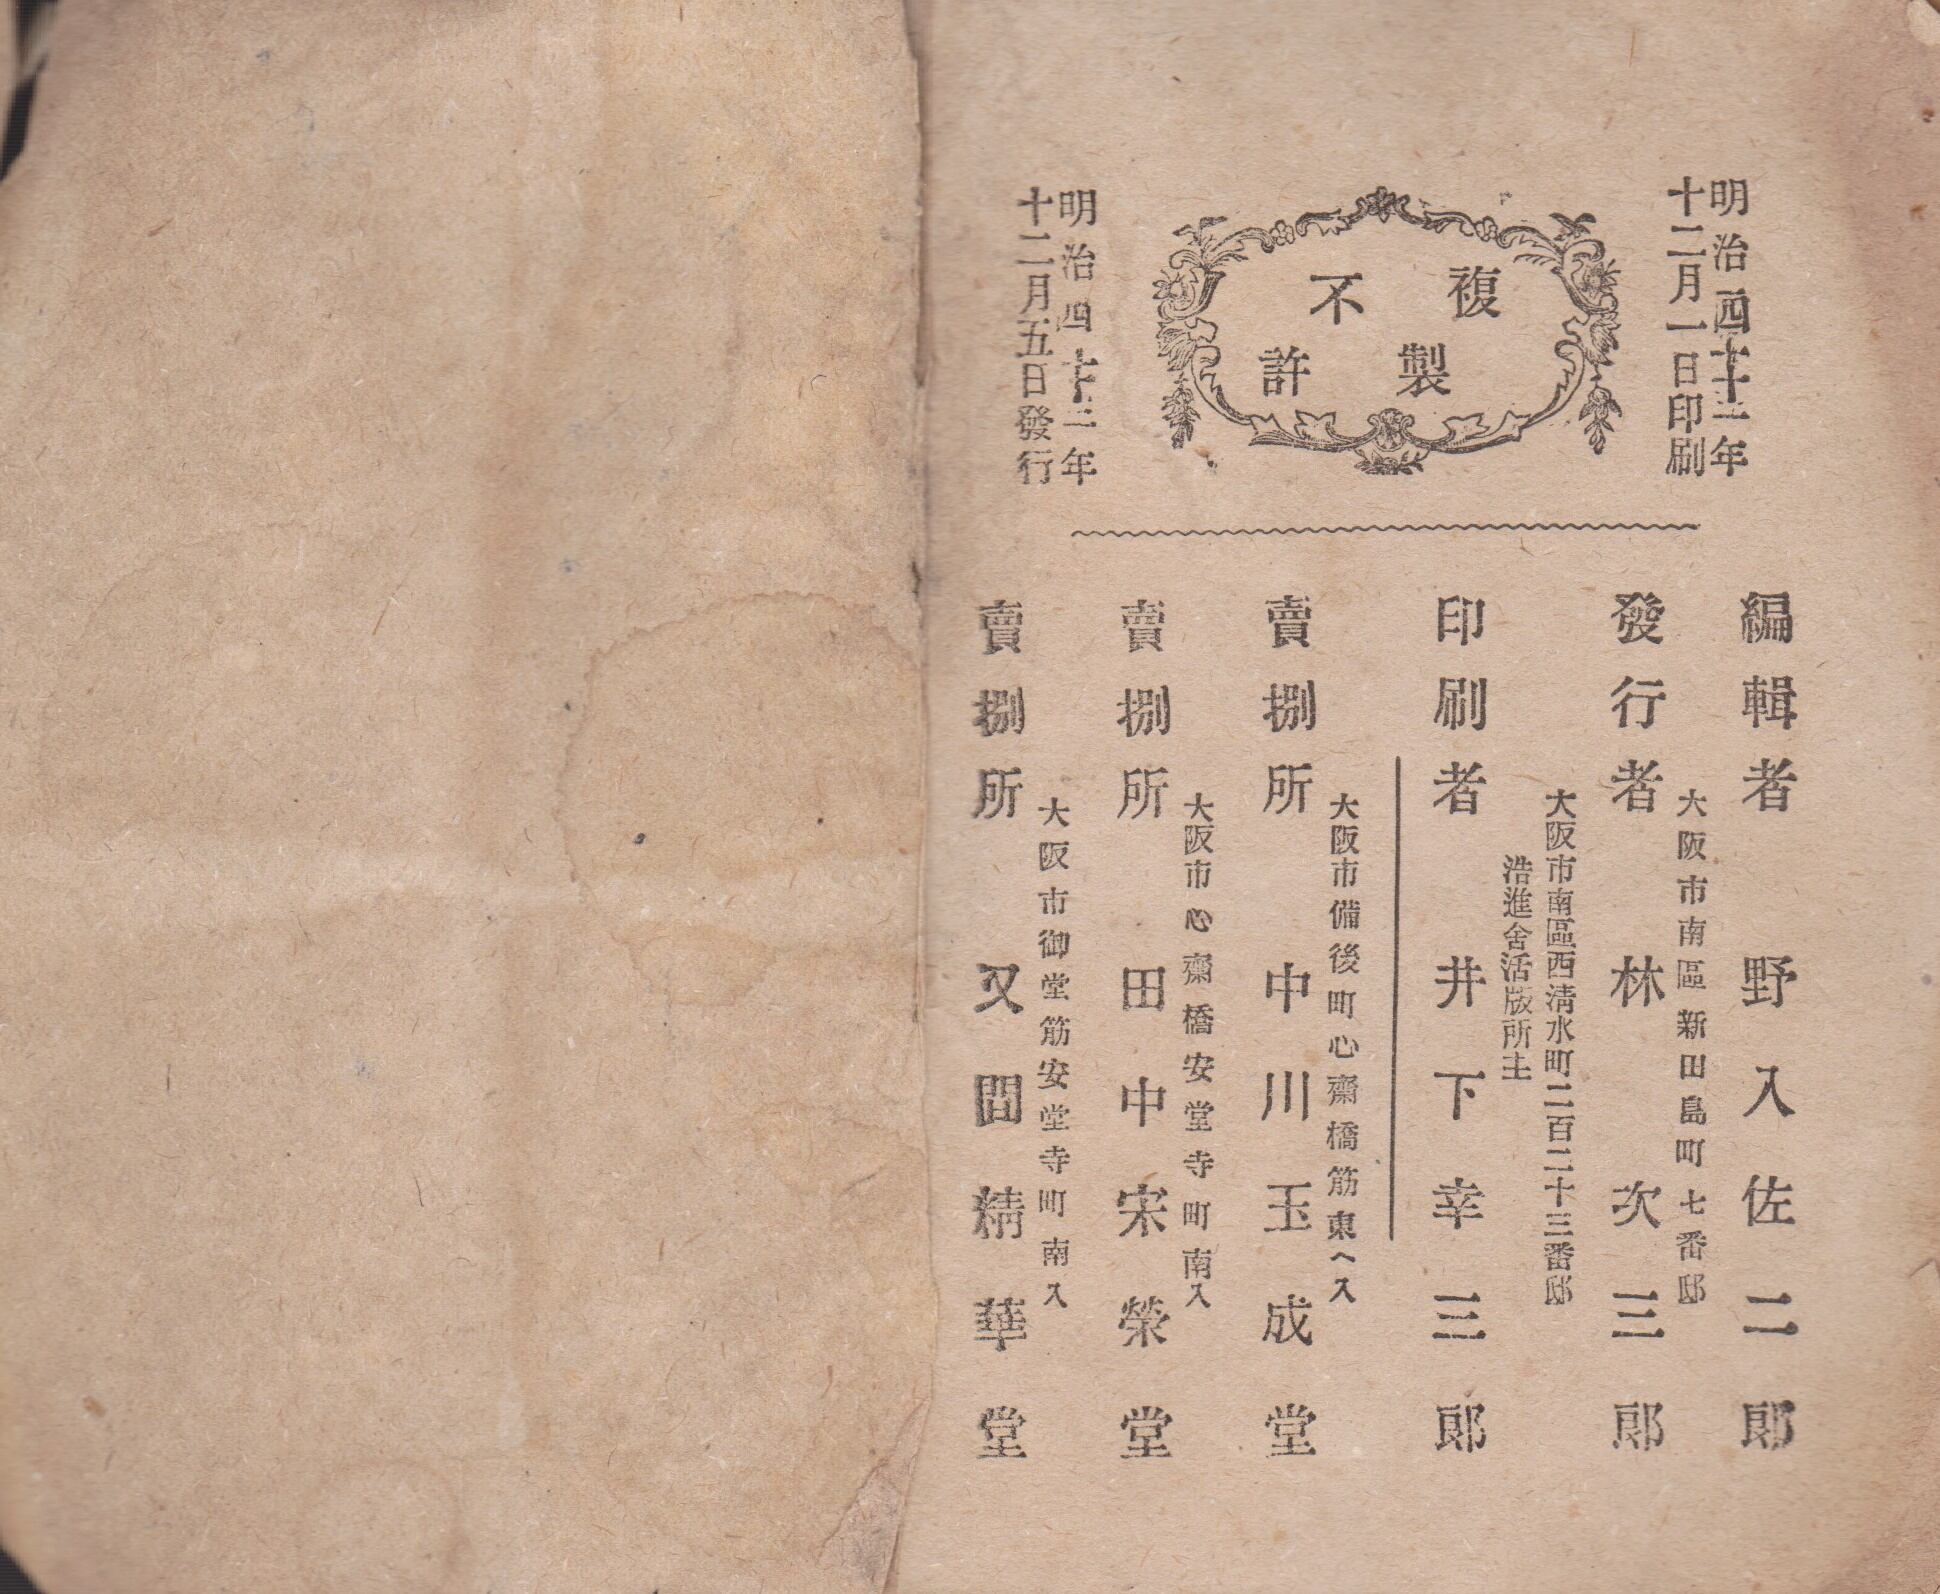 明治四十二年
十二月一日印刷
複製
不許
明治四十二年
十二月五日發行
編輯者 野入佐二郎
大阪市南區新田島町七番邸
發行者 林次三郎
大阪市南區西清水町二百二十三番邸
浩進舍活版所主
印刷者 井下幸三郎
大阪市備後町心齋橋筋東へ入
賣捌所 中川玉成堂
大阪市心齋橋安堂寺町南入
賣捌所 田中宋榮堂
大阪市御堂筋安堂寺町南入
賣捌所 又間精華堂